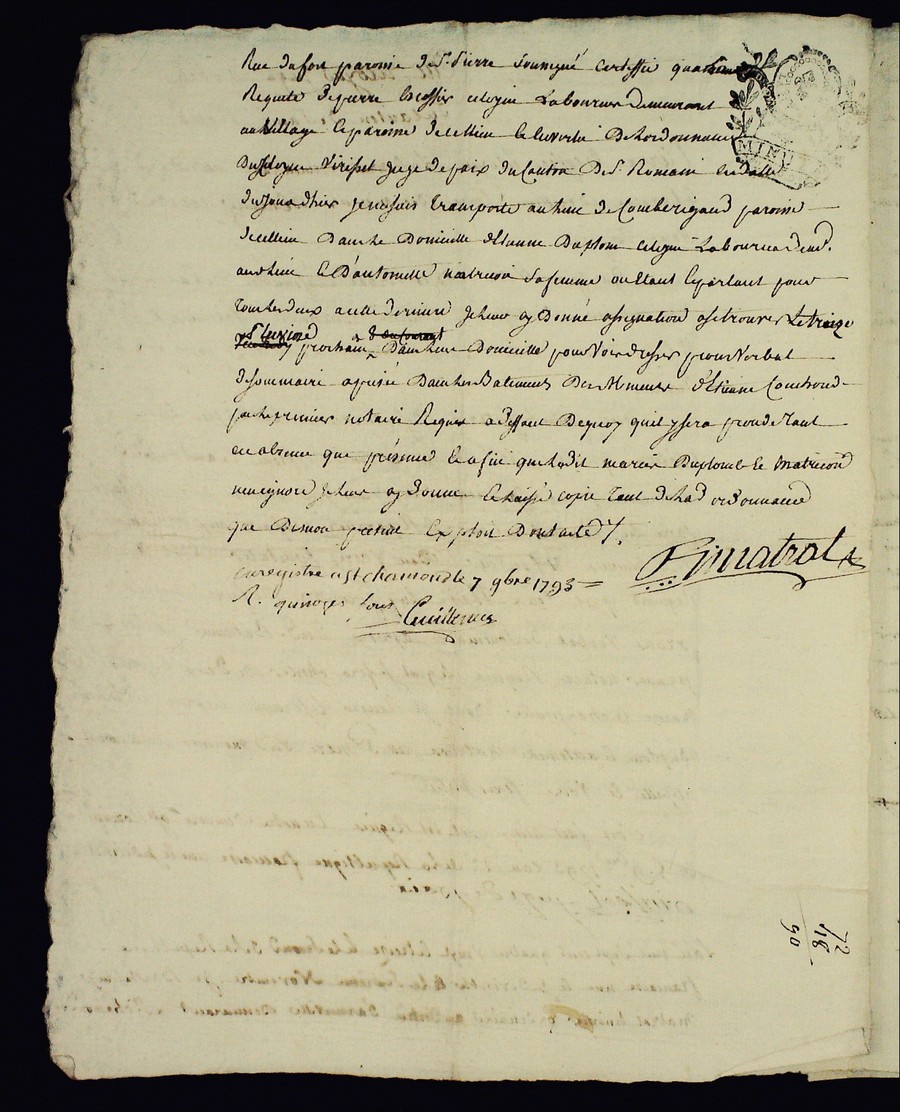 Rue du fort paroisse de St. Pierre soussigné certiffie qua
Requete de pierre Escossier citoyen Laboureur demeurant
au Village & paroisse de cellieu & en vertu De Lordonnance
Du citoyen juge de paix du Canton De St. Romain en datte
du jour dhier je me suis transporté au lieu de Comberigaud paroisse
de cellieu Dans le Domicille dEtienne Duplomb citoyen Laboureur Dud.
audit lieu & Dantoinette matricon sa femme ou Etant & parlant pour
tous les deux a cette derniere je leur ay Donné assignation a se trouver Le treize
du prochain Dans leur Domicille pour Voir dresser proces Verbal
de sommaire aprisée Dans les Batiments Des Mineurs dEtienne
par le premier notaire Requis a deffaut Dequoy quil y sera procedé tant
en absence que presence & afin que lesdit mariés Duplomb & Matricon
nen ignore je leur ay Donné & laissé copie tant de lad ordonnance
que De mon present Exploit Dont acte /.
Matrat
enregistre a St chamond le 7 9bre 1793 =
R. quinze sous
72
18
90